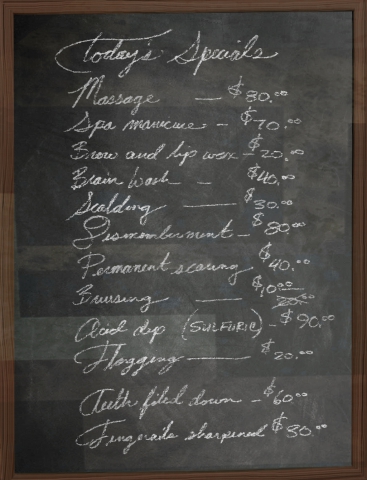 Today's Specials
Massage — $80.00
Spa manicure - $70.00
Brow and lip wax - $20.00
Brain Wash - $40.00
Scalding — $30.00
Dismemberment - $80.00
Permanent scaring $40.00
Bruising — $10.00
Acid dip (SULFURIC) - $90.00
Flogging — $20.00
Teeth filed down - $60
Fingernails sharpened $30.00